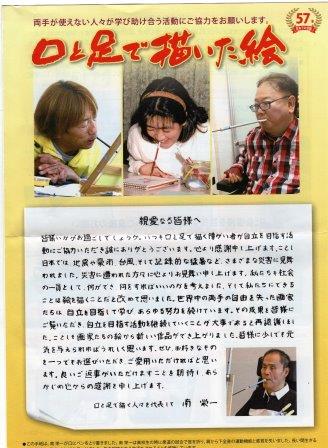 両手が使えない人々が学び助け合う活動にご協力をお願いします。
57
口と足で描いた絵
親愛なる皆様へ
皆様いかがお過ごしでしょうか。いつも口と足で描く障がい者が自立を目指す活
動にご協力いただき誠にありがとうございます。心より感謝申し上げます。ここ
日本では、地震や豪雨、台風、そして記録的な猛暑など、さまざまな災害に見舞
われました。災害に遭われた方々に心よりお見舞い申し上げます。私たちも社会
の一員として、何ができ、何をすればいいのかを考えました。そして私たちにできる
ことは絵を描くことだと改めて思いました。世界中の両手の自由を失った画家
たちは、自立を目指して学び、あらゆる努力を続けています。その成果を皆様に
ご覧いただき、自立を目指す活動を継続していくことが大事であると再認識しま
した。ここに画家たちの絵から新しい作品ができ上がりました。皆様に少しでも元
気を与えられればうれしく思います。ぜひ、お好きなもの
を一つでもお選びいただき、ご愛用いただければと思い
ます。良いご返事がいただけますことを期待し、あら
かじめ心からの感謝を申し上げます。
口と足で描く人々を代表して 南 栄一